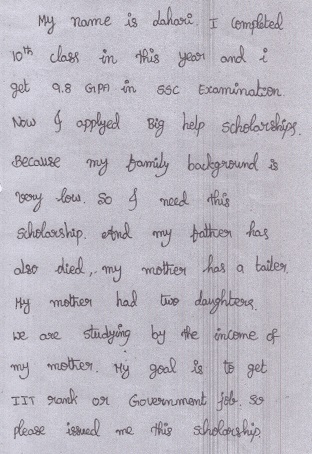 My name is dahari. I completed
10th class in this year and i
get 9.8 GPA in SSC Examination.
Now I applyed Big help scholarships.
Because my family background is
very low. So I need this
scholarship. And my father has
also died,. my mother has a tailer.
My mother had two daughters.
we are studying by the income of
my mother. My goal is to get
IIT rank or Government job. so
please issued me this scholorship.